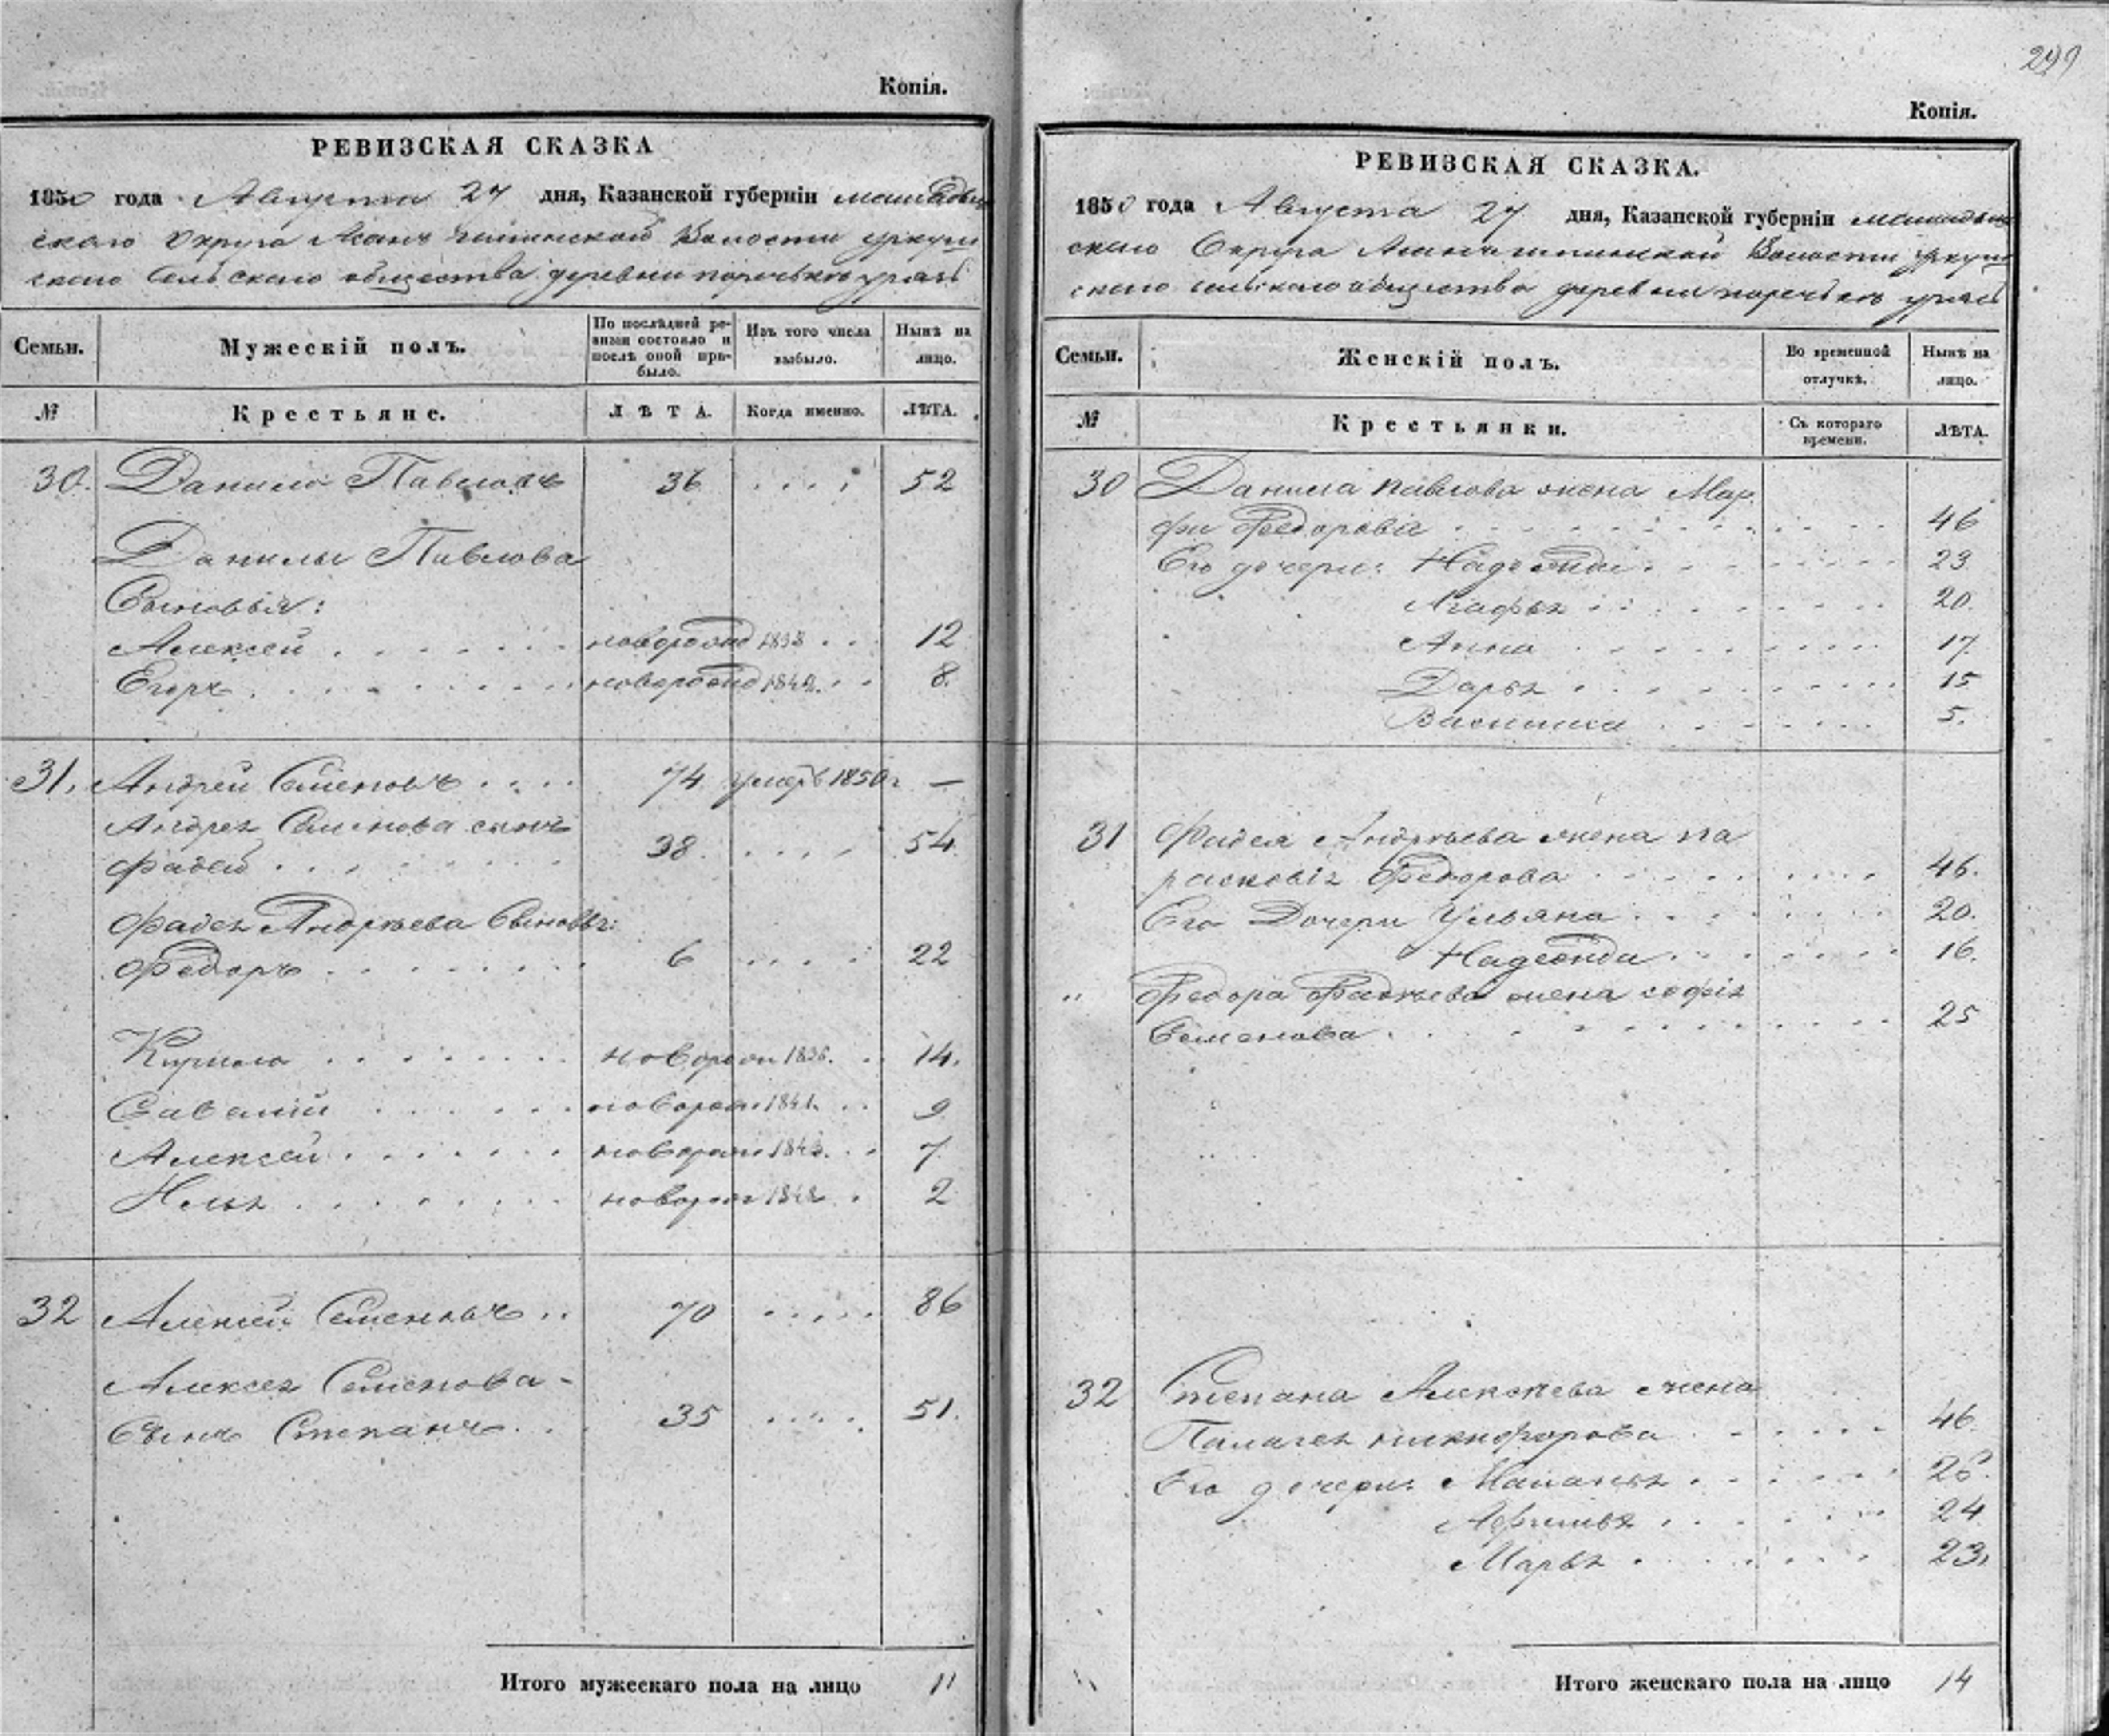 Копія.
РЕВИЗСКАЯ СКАЗКА
1850 года Августа 27 дня, Казанской губерніи мамадыш
скаго Округа волости
скаго Сельскаго общества деревни
Семьи.
Мужескій полъ.
По послѣдней ре-
визіи состояло и
послѣ оной при-
было.
Изъ того числа
выбыло.
Нынѣ на
лицо.
№
Крестьяне.
ЛѢТА.
Когда именно.
ЛѢТА.
30. Данило Павловъ 36 52
Данилы Павлова
Сыновья:
Алексей новорожд 1838 12
Егоръ новорожд 1842. 8.
31. Андрей Семеновъ 74 умеръ 1850 г —
Андрея Семенова сынъ
Фадей 38. 54.
Фадея Андрѣева Сыновья:
Федоръ 6 22
Кирило новорож 1836. 14.
Савелій новорож 1841. 9
Алексей новорож 1843. 7
Илья новорож 1848 2
32 Алексей Семеновъ 70 86
Алексея Семенова
Сынъ Степанъ 35 51.
Итого мужескаго пола на лицо 11
299
Копія.
РЕВИЗСКАЯ СКАЗКА.
1850 года Августа 27 дня, Казанской губерніи мамадыш
скаго Округа Волости
скаго сельскаго общества деревни
Семьи.
Женскій полъ.
Во временной
отлучкѣ.
Нынѣ на
лицо.
№
Крестьянки.
Съ котораго
времени.
ЛѢТА.
30 Данила Павлова жена Мар
фа Федорова 46
Его дочери: Надежда 23
Агафья 20.
Анна 17.
Дарья 15
Василиса 5.
31 Фадея Андрѣева жена па
расковія Федорова 46.
Его Дочери Ульяна 20.
Надежда 16.
" Федора Фадѣева жена софія
Семенова 25
32 Степана Алексѣева жена
Палагея никифорова 46
Его дочери: Маланья
24
Марья 23.
Итого женскаго пола на лицо 14